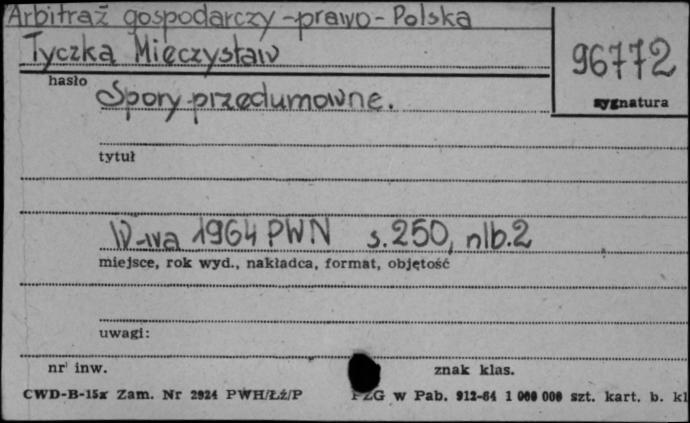 Arbitraż gospodarczy - prawo - Polska
Tyczka Mieczysław
96772
hasło
sygnatura
Spory przedumowne.
tytuł
W-wa 1964 PWN s. 250, nlb. 2
miejsce, rok wyd., nakładca, format, objętość
uwagi:
nr inw.
znak klas.
CWD-B-15x Zam. Nr 2924 PWH/Łź/P PZG w Pab. 912-64 1 000 000 szt. kart. b. kl